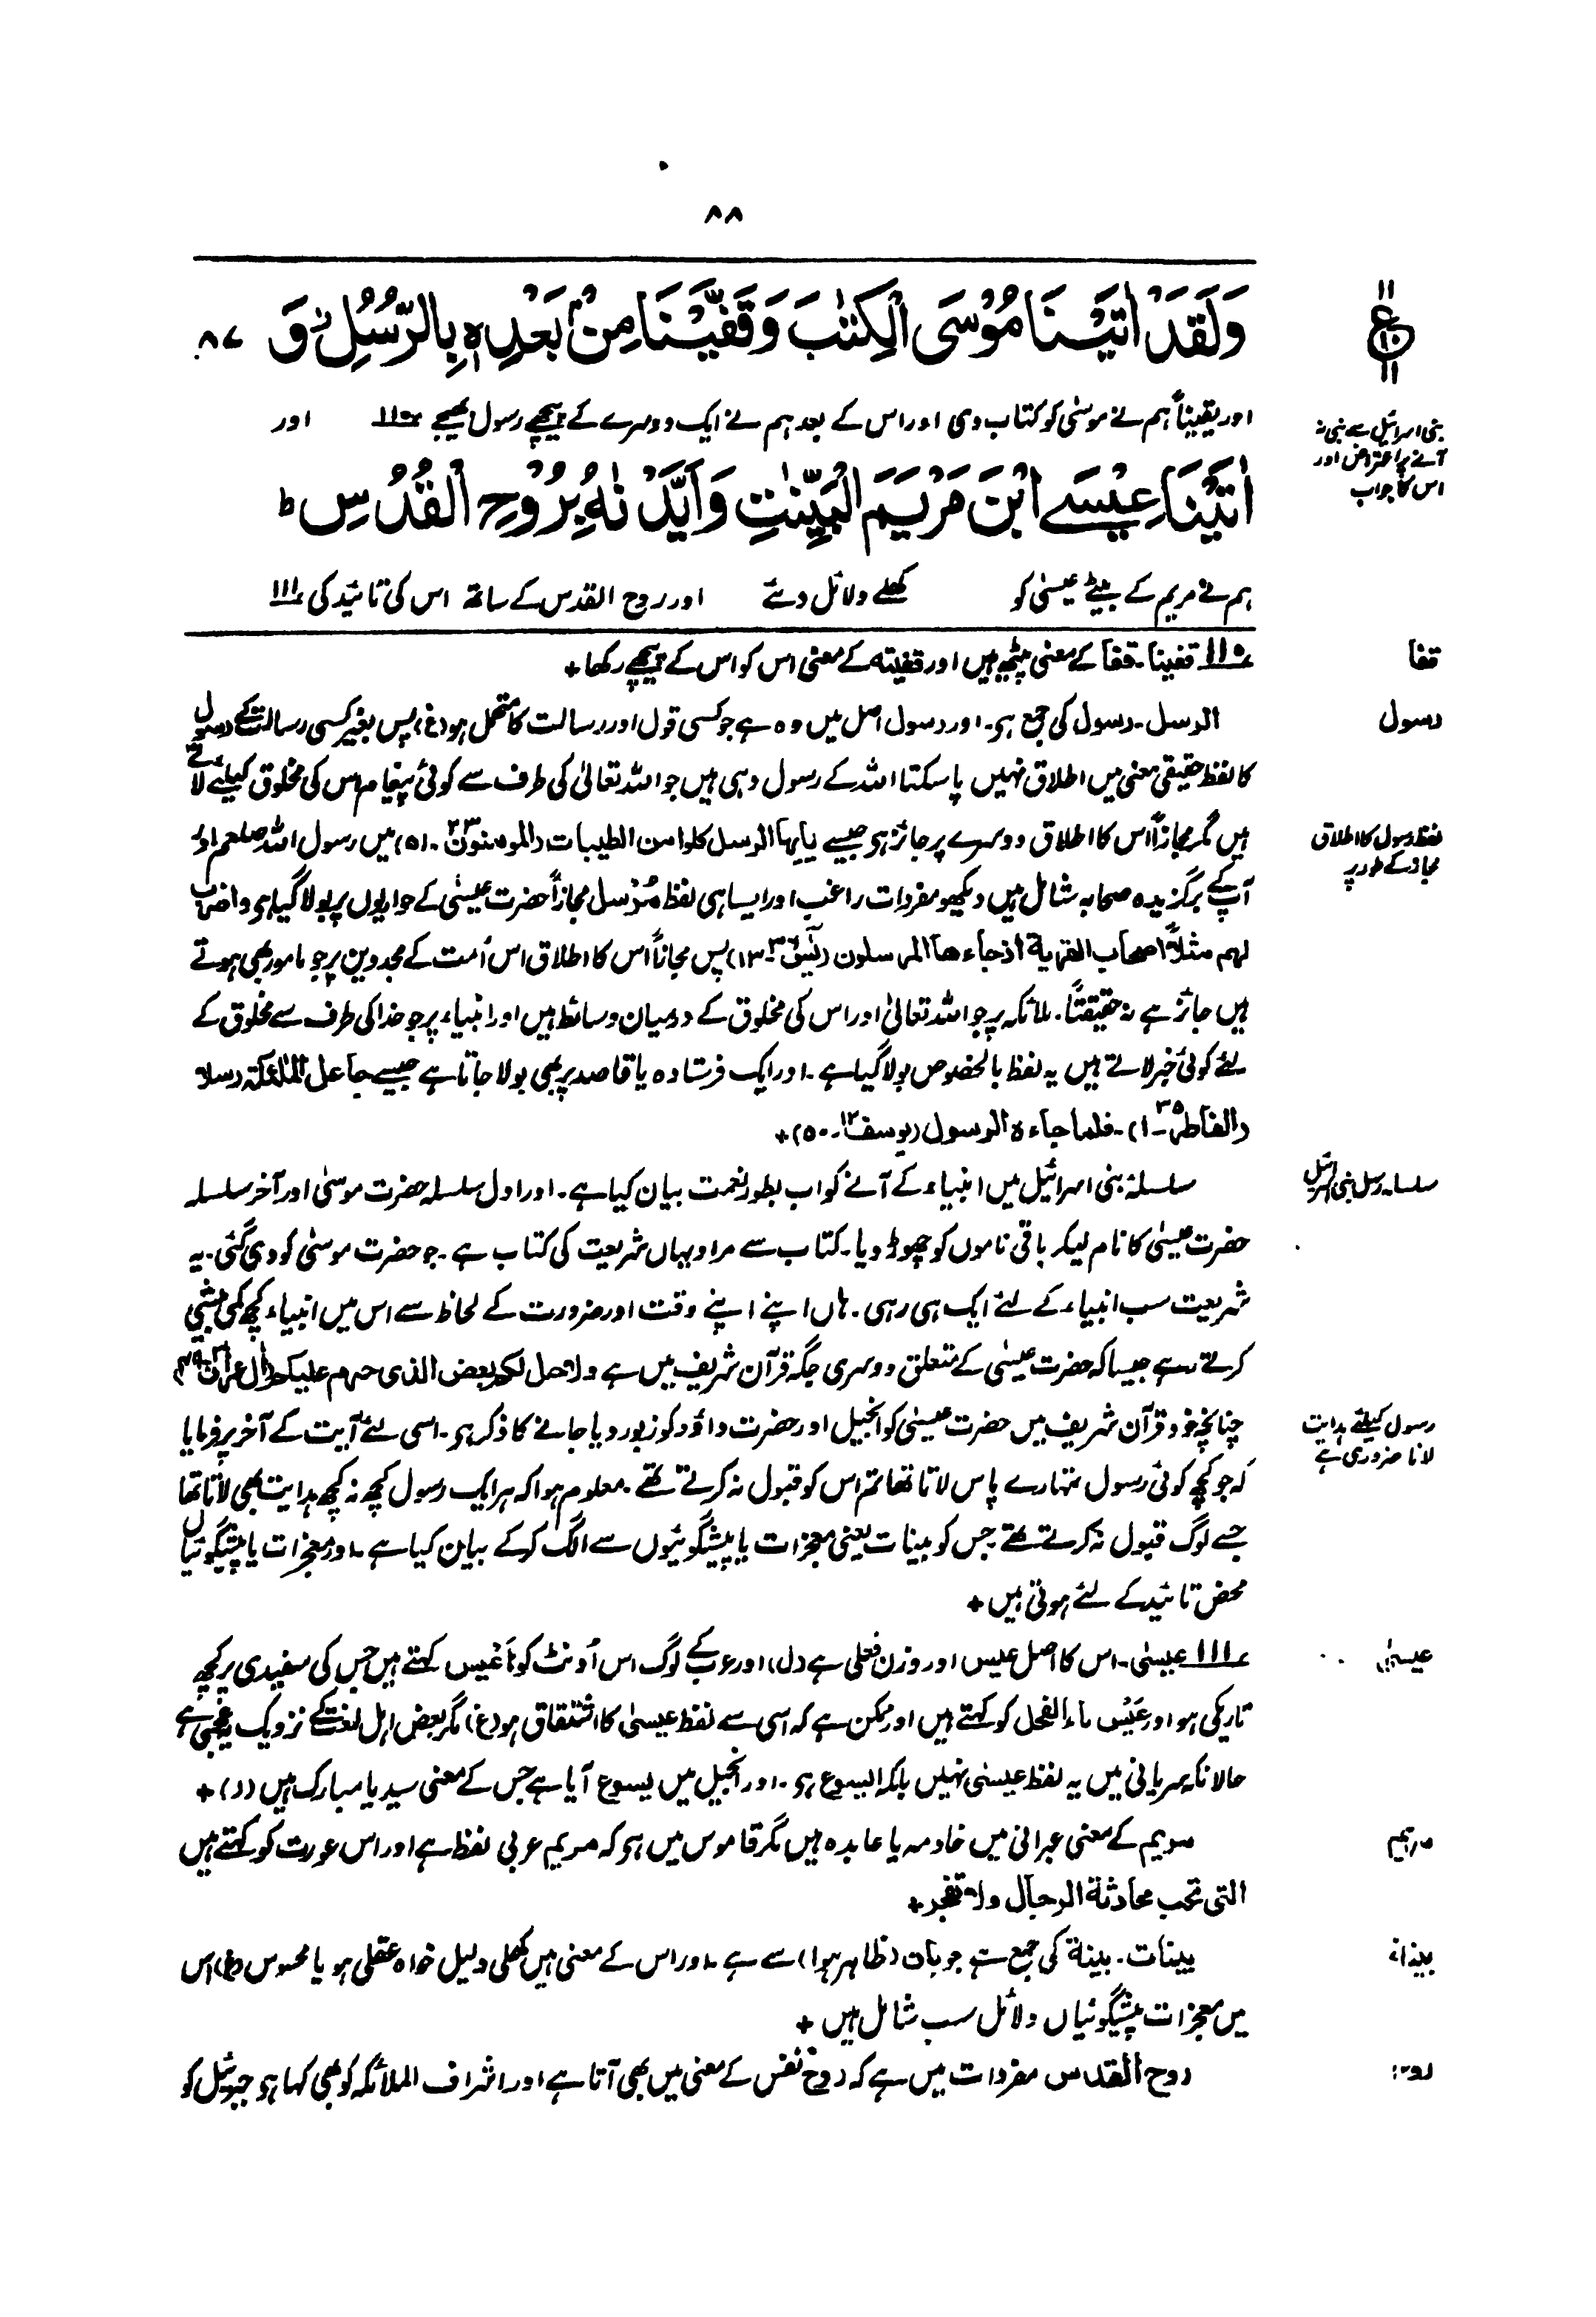 ٨٨
وَلَقَدْ اٰتَيْنَا مُوْسَى الْكِتٰبَ وَقَفَّيْنَا مِنْۢ بَعْدِهٖ بِالرُّسُلِ ۫ وَ ٨٧
ع
١٠
١١
اور یقیناً ہم نے موسیٰ کو کتاب دی اور اس کے بعد ہم نے ایک دوسرے کے پیچھے رسول بھیجے ۱۱۰ اور
بنی اسرائیل سے نبی نہ
آنے پر اعتراض اور
اس کا جواب
اٰتَيْنَا عِيْسَے ابْنَ مَرْيَمَ الْبَيِّنٰتِ وَاَيَّدْنٰهُ بِرُوْحِ الْقُدُسِ ط
ہم نے مریم کے بیٹے عیسیٰ کو کھلے دلائل دئے اور روح القدس کے ساتھ اس کی تائید کی ۱۱۱
قفا
۱۱۰ قفینا۔ قفا کے معنی پیٹھ ہیں اور قفیته کے معنی اس کو اس کے پیچھے رکھا +
رسول
الرسل۔ رسول کی جمع ہے۔ اور رسول اصل میں وہ ہے جو کسی قول اور رسالت کا متحمل ہو (غ) پس بغیر کسی رسالت کے رسول
کا لفظ حقیقی معنی میں اطلاق نہیں پا سکتا اللہ کے رسول وہی ہیں جو اللہ تعالیٰ کی طرف سے کوئی پیغام اس کی مخلوق کیلئے لاتے
لفظ رسول کا اطلاق
مجاز کے طور پر
ہیں مگر مجازاً اس کا اطلاق دوسرے پر جائز ہے جیسے یایہا الرسل کلوا من الطیبات (المومنون ۲۳۔ ۵۱) میں رسول اللہ صلعم اور
آپ کے برگزیدہ صحابہ شامل ہیں دیکھو مفردات راغب اور ایسا ہی لفظ مُرسل مجازاً حضرت عیسیٰ کے حواریوں پر بولا گیا ہے واضرب
لہم مثلاً اصحاب القریة اذ جاءھا المرسلون (یٰسٓ ۳۶۔ ۱۳) پس مجازاً اس کا اطلاق اس اُمت کے مجددین پر جو مامور بھی ہوتے
ہیں جائز ہے نہ حقیقتاً۔ ملائکہ پر جو اللہ تعالیٰ اور اس کی مخلوق کے درمیان وسائط ہیں اور انبیاء پر جو خدا کی طرف سے مخلوق کے
لئے کوئی خبر لاتے ہیں یہ لفظ بالخصوص بولا گیا ہے۔ اور ایک فرستادہ یا قاصد پر بھی بولا جاتا ہے جیسے جاعل الملٰئکة رسلا
(الفاطر ۳۵۔ ۱)۔ فلما جاءہ الرسول (یوسف ۱۲۔ ۵۰) +
سلسلہ رسل بنی اسرائیل
سلسلۂ بنی اسرائیل میں انبیاء کے آنے کو اب بطور نعمت بیان کیا ہے۔ اور اول سلسلہ حضرت موسیٰ اور آخر سلسلہ
حضرت عیسیٰ کا نام لیکر باقی ناموں کو چھوڑ دیا۔ کتاب سے مراد یہاں شریعت کی کتاب ہے۔ جو حضرت موسیٰ کو دی گئی۔ یہ
شریعت سب انبیاء کے لئے ایک ہی رہی۔ ہاں اپنے اپنے وقت اور ضرورت کے لحاظ سے اس میں انبیاء کچھ کمی بیشی
کرتے رہے جیسا کہ حضرت عیسیٰ کے متعلق دوسری جگہ قرآن شریف میں ہے ولاحل لکم بعض الذی حرم علیکم (اٰل عمران ۳۔ ۴۹)
رسول کیلئے ہدایت
لانا ضروری ہے
چنانچہ خود قرآن شریف میں حضرت عیسیٰ کو انجیل اور حضرت داؤد کو زبور دیا جانے کا ذکر ہے۔ اسی لئے آیت کے آخر پر فرمایا
کہ جو کچھ کوئی رسول تمہارے پاس لاتا تھا تم اس کو قبول نہ کرتے تھے۔ معلوم ہوا کہ ہر ایک رسول کچھ نہ کچھ ہدایت بھی لاتا تھا
جسے لوگ قبول نہ کرتے تھے جس کو بینات یعنی معجزات یا پیشگوئیوں سے الگ کر کے بیان کیا ہے۔ اور معجزات یا پیشگوئیاں
محض تائید کے لئے ہوتی ہیں +
عیسیٰ
۱۱۱ عیسیٰ۔ اس کا اصل عیس اور وزن فعلی ہے (ل) اور عرب کے لوگ اس اُونٹ کو اَعْیَس کہتے ہیں جس کی سفیدی پر کچھ
تاریکی ہو اور عَیْس ماء الفحل کو کہتے ہیں اور ممکن ہے کہ اسی سے لفظ عیسیٰ کا اشتقاق ہو (غ) مگر بعض اہل لغت کے نزدیک یہ عجمی ہے
حالانکہ سریانی میں یہ لفظ عیسیٰ نہیں بلکہ ایسوع ہے۔ اور انجیل میں یسوع آیا ہے جس کے معنی سید یا مبارک ہیں (ر) +
مریم
مریم کے معنی عبرانی میں خادمہ یا عابدہ ہیں مگر قاموس میں ہے کہ مریم عربی لفظ ہے اور اس عورت کو کہتے ہیں
التی تحب محادثة الرجال ولا تفجر +
بینات
بینات۔ بینة کی جمع ہے جو بان (ظاہر ہوا) سے ہے۔ اور اس کے معنی ہیں کھلی دلیل خواہ عقلی ہو یا محسوس (غ) اس
میں معجزات پیشگوئیاں دلائل سب شامل ہیں +
روح
روح القدس مفردات میں ہے کہ روح نفس کے معنی میں بھی آتا ہے اور اشراف الملائکہ کو بھی کہا ہے جبرئیل کو